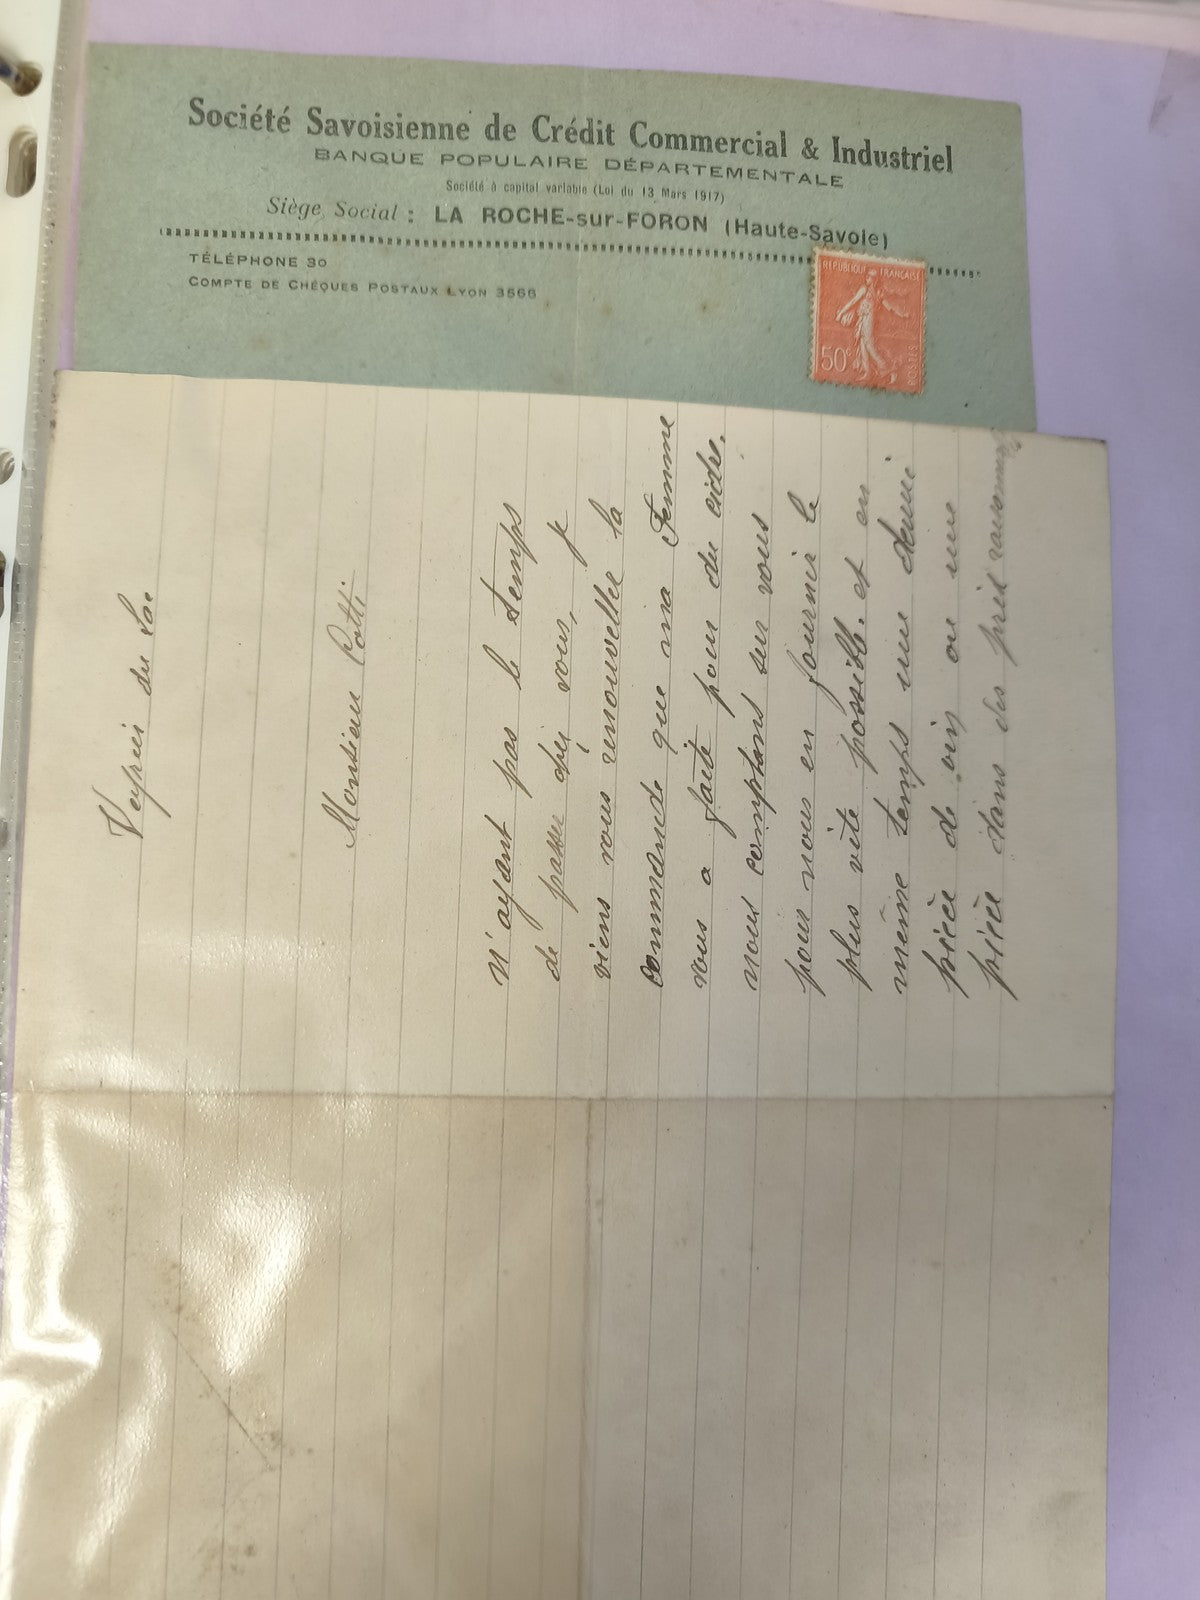 Société Savoisienne de Crédit Commercial & Industriel
BANQUE POPULAIRE DÉPARTEMENTALE
Société à capital variable (Loi du 13 Mars 1917)
Siège Social : LA ROCHE-sur-FORON (Haute-Savoie)
TÉLÉPHONE 30
COMPTE DE CHÈQUES POSTAUX LYON 3566
REPUBLIQUE FRANÇAISE
50c
POSTES
du Lac
Monsieur Cotti
N'ayant pas le temps
de passer chez vous, je
viens vous renouveller la
commande que ma femme
vous a faite pour du cidre.
nous comptons sur vous
pour nous en fournir le
plus vite possible. et en
même temps une demie
pièce de vin ou une
pièce dans des prix